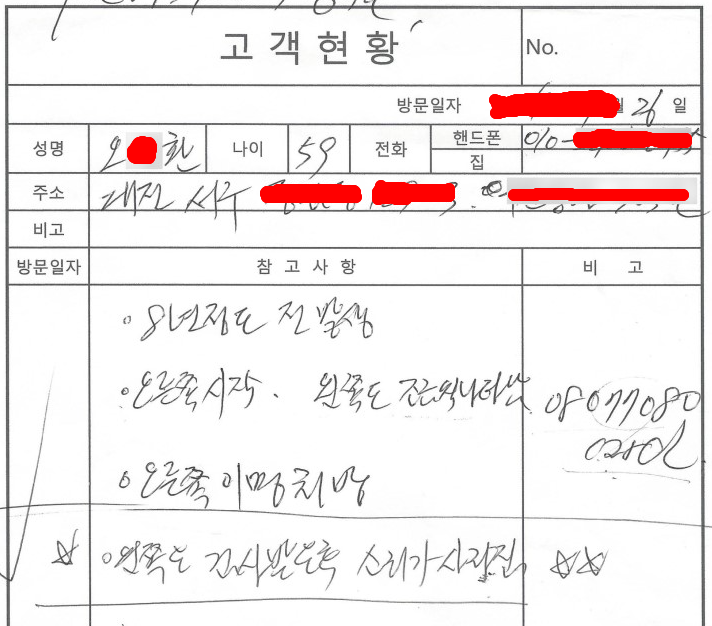 고객현황
No.
방문일자 월 26 일
성명 오 환 나이 59 전화 핸드폰 010-
집
주소 대전 서구
비고
방문일자 참고사항 비 고
◦ 8년정도 전 발생
◦ 오른쪽 시작. 왼쪽도 조금씩 나타남
08077080
◦ 오른쪽 이명처방
☆ ◦ 왼쪽도 검사받도록 소리가 사라짐 ☆☆